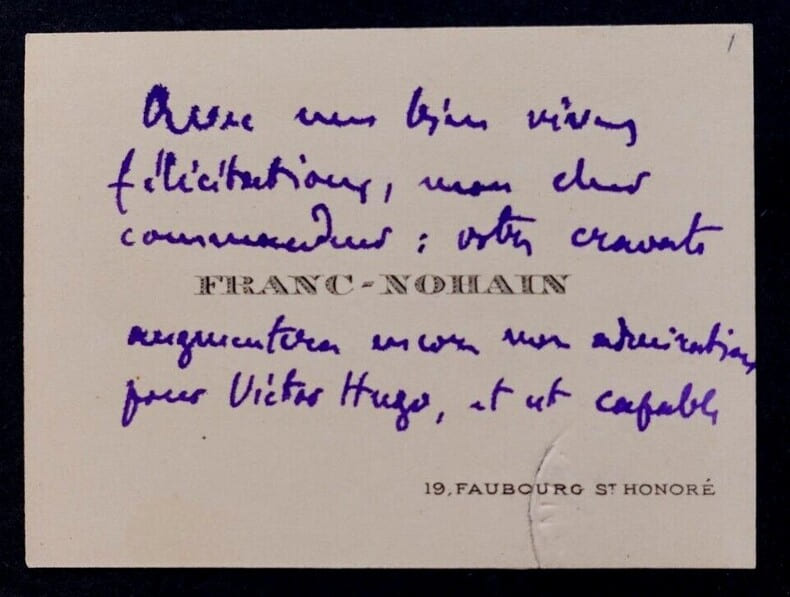 Avec mes bien vives
félicitations, mon cher
commandeur : votre cravate
FRANC-NOHAIN
augmentera encore mon admiration
pour Victor Hugo, et est capable
19, FAUBOURG ST HONORÉ